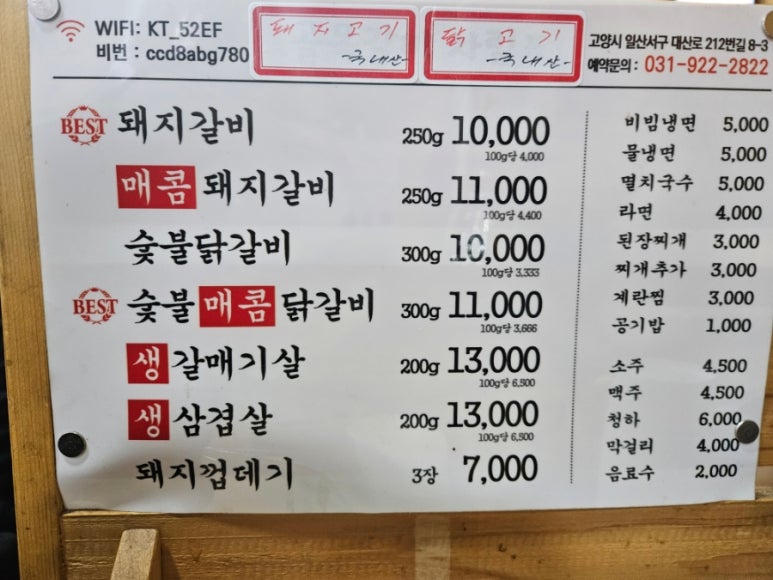 WIFI: KT_52EF
비번 : ccd8abg780
돼지고기
-국내산-
닭고기
-국내산-
고양시 일산서구 대산로 212번길 8-3
예약문의 : 031-922-2822
BEST 돼지갈비 250g 10,000
100g당 4,000
매콤 돼지갈비 250g 11,000
100g당 4,400
숯불닭갈비 300g 10,000
100g당 3,333
BEST 숯불 매콤 닭갈비 300g 11,000
100g당 3,666
생 갈매기살 200g 13,000
100g당 6,500
생 삼겹살 200g 13,000
100g당 6,500
돼지껍데기 3장 7,000
비빔냉면 5,000
물냉면 5,000
멸치국수 5,000
라면 4,000
된장찌개 3,000
찌개추가 3,000
계란찜 3,000
공기밥 1,000
소주 4,500
맥주 4,500
청하 6,000
막걸리 4,000
음료수 2,000